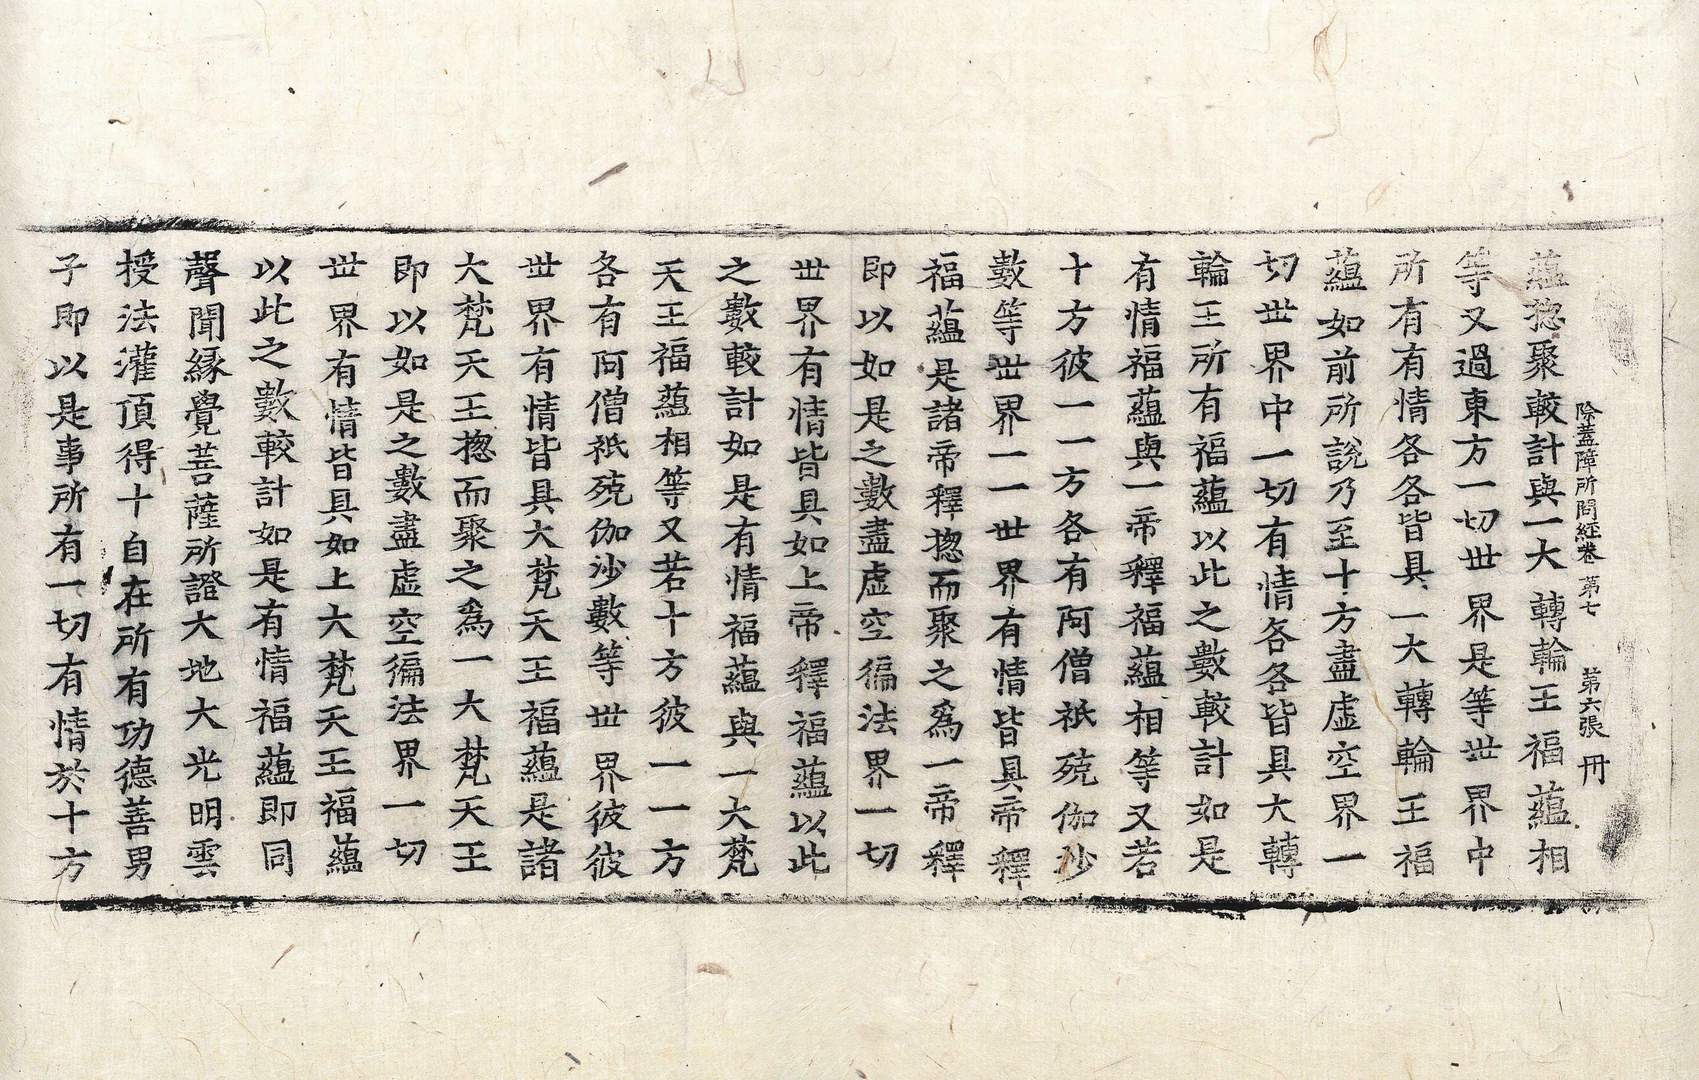 除蓋障所問經卷第七 第六張 冊
蘊揔聚較計與一大轉輪王福蘊相
等又過東方一切世界是等世界中
所有有情各各皆具一大轉輪王福
蘊如前所說乃至十方盡虛空界一
切世界中一切有情各各皆具大轉
輪王所有福蘊以此之數較計如是
有情福蘊與一帝釋福蘊相等又若
十方彼一一方各有阿僧祇殑伽沙
數等世界一一世界有情皆具帝釋
福蘊是諸帝釋揔而聚之爲一帝釋
即以如是之數盡虛空徧法界一切
世界有情皆具如上帝釋福蘊以此
之數較計如是有情福蘊與一大梵
天王福蘊相等又若十方彼一一方
各有阿僧祇殑伽沙數等世界彼彼
世界有情皆具大梵天王福蘊是諸
大梵天王揔而聚之爲一大梵天王
即以如是之數盡虛空徧法界一切
世界有情皆具如上大梵天王福蘊
以此之數較計如是有情福蘊即同
聲聞緣覺菩薩所證大地大光明雲
授法灌頂得十自在所有功德善男
子即以是事所有一切有情於十方